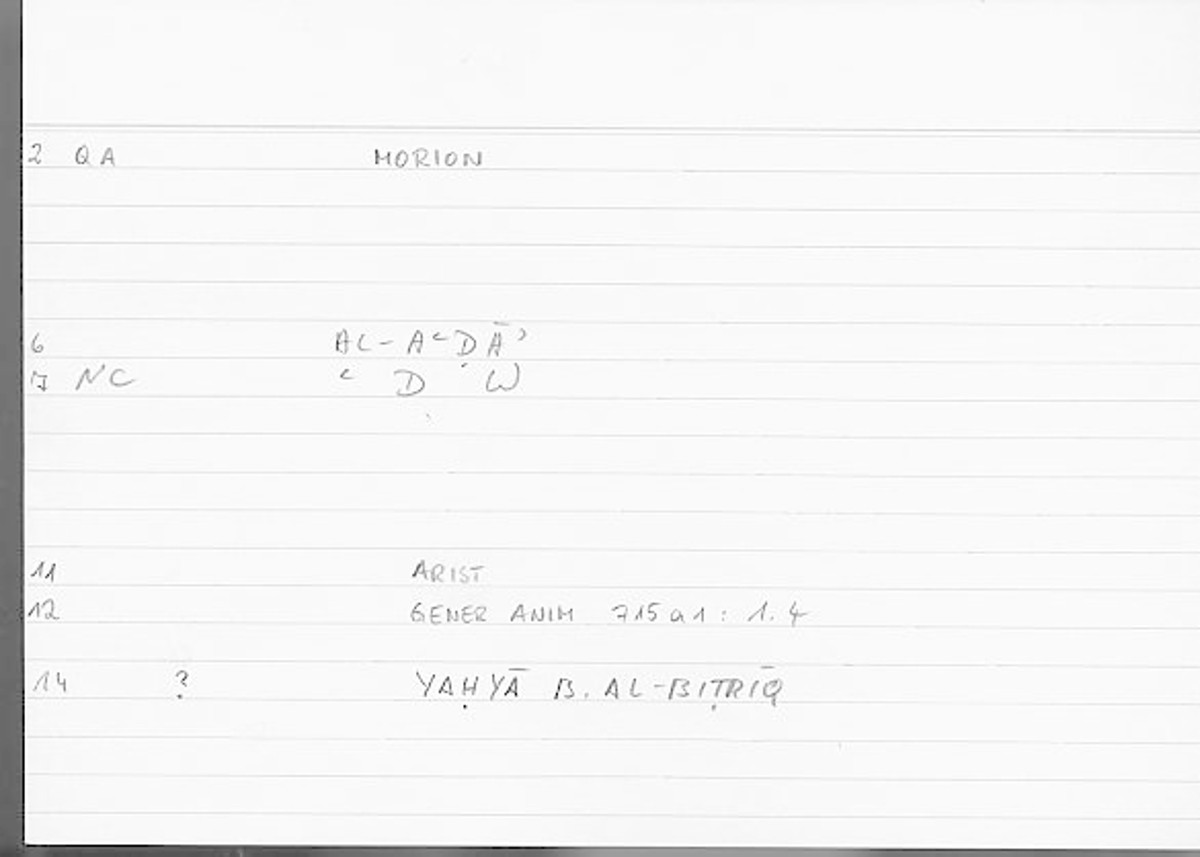 2 QA MORION
6 AL-AʿḌĀʾ
7 NC ʿ Ḍ W
11 ARIST
12 GENER ANIM 715a1 : 1.4
14 ? YAḤYĀ B. AL-BIṬRĪQ